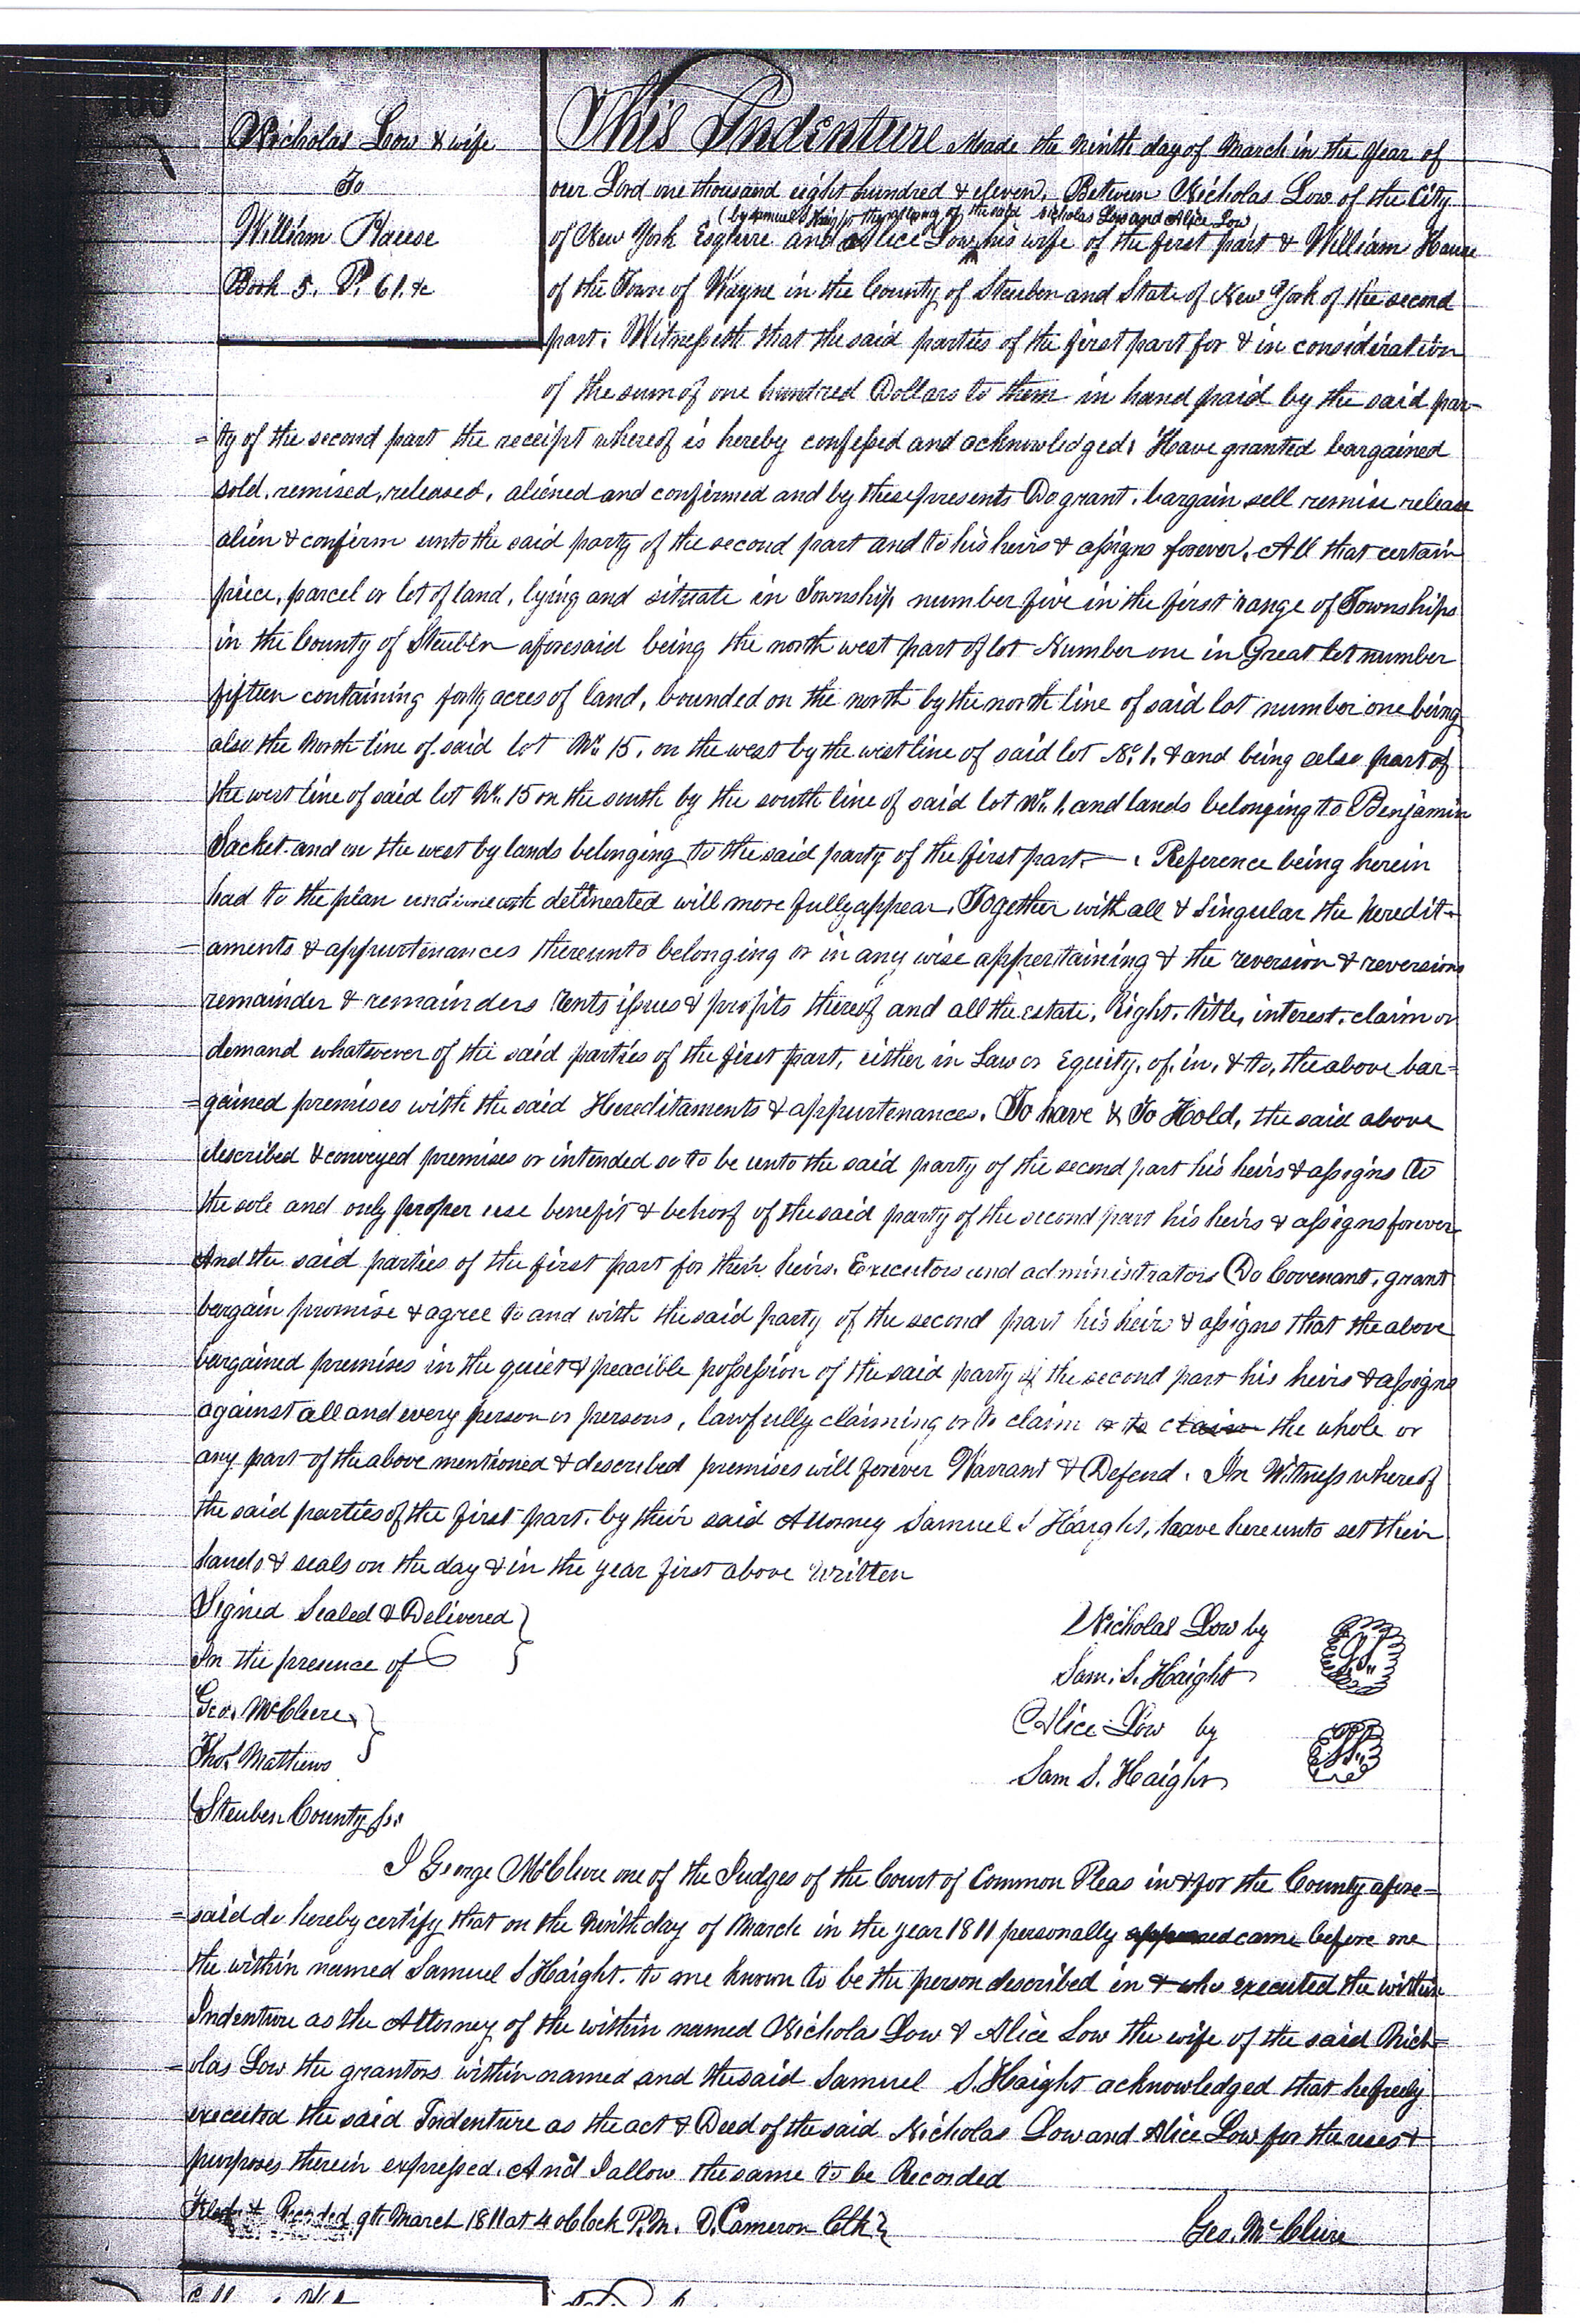 Nicholas Low & wife
To
William Hause
Book 5. P. 61. &c
This Indenture Made the ninth day of March in the year of
our Lord one thousand eight hundred & eleven, Between Nicholas Low of the City
(by Samuel S Haight the attorney of the said Nicholas Low and Alice Low)
of New York Esquire and Alice Low his wife of the first part & William Hause
of the Town of Wayne in the County of Steuben and State of New York of the second
part: Witnesseth that the said parties of the first part for & in consideration
of the sum of one hundred Dollars to them in hand paid by the said par-
=ty of the second part the receipt whereof is hereby confessed and acknowledged, Have granted bargained
sold, remised, released, aliened and confirmed and by these presents Do grant, bargain sell remise release
alien & confirm unto the said party of the second part and to his heirs & assigns forever, All that certain
piece, parcel or lot of land, lying and situate in Township number five in the first range of Townships
in the County of Steuben aforesaid being the north west part of lot Number one in Great lot number
fifteen containing forty acres of land, bounded on the north by the north line of said lot number one being
also the North line of said lot No. 15, on the west by the west line of said lot No. 1. & and being also part of
the west line of said lot No. 15 on the south by the south line of said lot No. 1, and lands belonging to Benjamin
Sacket and on the west by lands belonging to the said party of the first part — . Reference being herein
had to the plan underneath delineated will more fully appear, Together with all & Singular the heredit-
=aments & appurtenances thereunto belonging or in any wise appertaining & the reversion & reversions
remainder & remainders rents issues & profits thereof and all the estate, Right, title, interest, claim or
demand whatsoever of the said parties of the first part, either in Law or Equity, of, in, & to, the above bar=
=gained premises with the said Hereditaments & appurtenances. To have & To Hold, the said above
described & conveyed premises or intended so to be unto the said party of the second part his heirs & assigns to
the sole and only proper use benefit & behoof of the said party of the second part his heirs & assigns forever
And the said parties of the first part for their heirs, Executors and administrators Do Covenant, grant
bargain promise & agree to and with the said party of the second part his heirs & assigns that the above
bargained premises in the quiet & peacible possession of the said party of the second part his heirs & assigns
against all and every person or persons, lawfully claiming or to claim or to claim the whole or
any part of the above mentioned & described premises will forever Warrant & Defend. In Witness whereof
the said parties of the first part, by their said Attorney Samuel S Haight, have hereunto set their
hands & seals on the day & in the year first above written
Signed Sealed & Delivered
In the presence of
Geo. McClure
Thos. Mathews
Nicholas Low by
Sam. S. Haight
L.S.
Alice Low by
Sam S. Haight
L.S.
Steuben County ss:
I George McClure one of the Judges of the Court of Common Pleas in & for the County afore=
=said do hereby certify that on the Ninth day of March in the year 1811 personally appeared came before me
the within named Samuel S Haight. to me known to be the person described in & who executed the within
Indenture as the Attorney of the within named Nicholas Low & Alice Low the wife of the said Nich=
=olas Low the grantors within named and the said Samuel S. Haight acknowledged that he freely
executed the said Indenture as the act & Deed of the said Nicholas Low and Alice Low for the uses &
purposes therein expressed. And I allow the same to be Recorded
Recorded 9th March 1811 at 4 oClock P.M. D. Cameron Clk
Geo. McClure